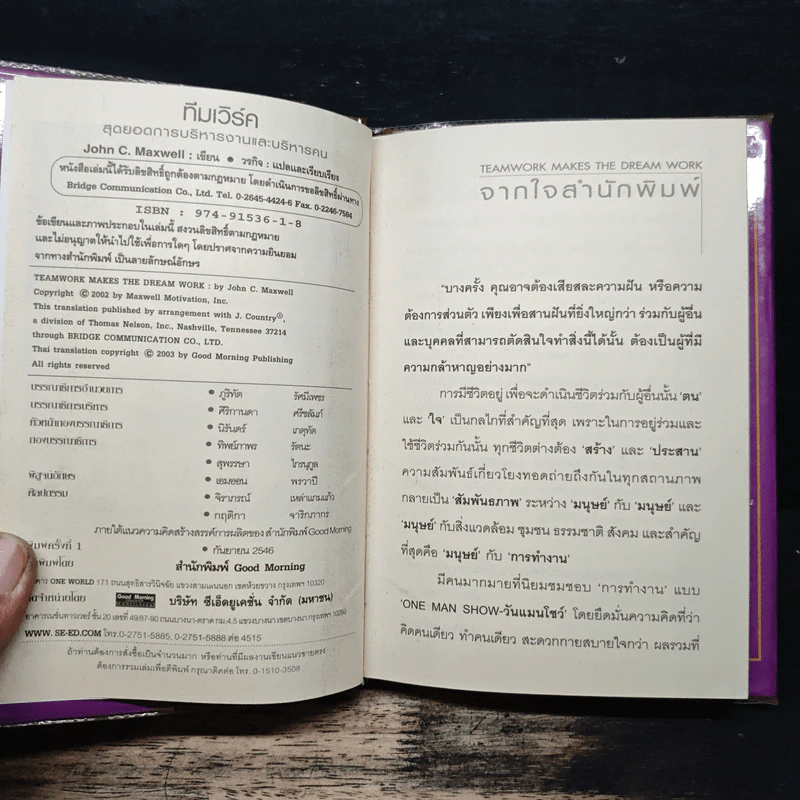 ทีมเวิร์ค
สุดยอดการบริหารงานและบริหารคน
John C. Maxwell : เขียน ● วรกิจ : แปลและเรียบเรียง
หนังสือเล่มนี้ได้รับลิขสิทธิ์ถูกต้องตามกฎหมาย โดยดำเนินการขอลิขสิทธิ์ผ่านทาง
Bridge Communication Co., Ltd. Tel. 0-2645-4424-6 Fax. 0-2246-7584
ISBN : 974-91536-1-8
ข้อเขียนและภาพประกอบในเล่มนี้ สงวนลิขสิทธิ์ตามกฎหมาย
และไม่อนุญาตให้นำไปใช้เพื่อการใดๆ โดยปราศจากความยินยอม
จากทางสำนักพิมพ์ เป็นลายลักษณ์อักษร
TEAMWORK MAKES THE DREAM WORK : by John C. Maxwell
Copyright © 2002 by Maxwell Motivation, Inc.
This translation published by arrangement with J. Country®,
a division of Thomas Nelson, Inc., Nashville, Tennessee 37214
through BRIDGE COMMUNICATION CO., LTD.
Thai translation copyright © 2003 by Good Morning Publishing
All rights reserved
บรรณาธิการอำนวยการ ● ภูริทัต รัศมีเพชร
บรรณาธิการบริหาร ● ศิริกานดา ศรีชลัมภ์
หัวหน้ากองบรรณาธิการ ● นิรันดร์ เกตุทัต
กองบรรณาธิการ ● ทิพย์ภาพร รัตนะ
● สุพรรษา ไกรนุกูล
พิสูจน์อักษร ● เอมออน พรวาปี
ศิลปกรรม ● จิราภรณ์ เหล่าแกมแก้ว
● กฤติกา จาริกภากร
ภายใต้แนวความคิดสร้างสรรค์การผลิตของ สำนักพิมพ์ Good Morning
พิมพ์ครั้งที่ 1 ● กันยายน 2546
พิมพ์โดย สำนักพิมพ์ Good Morning
อาคาร ONE WORLD 171 ถนนสุทธิสารวินิจฉัย แขวงสามเสนนอก เขตห้วยขวาง กรุงเทพฯ 10320
จัดจำหน่ายโดย Good Morning บริษัท ซีเอ็ดยูเคชั่น จำกัด (มหาชน)
อาคารเนชั่นทาวเวอร์ ชั้น 20 เลขที่ 49/87-90 ถนนบางนา-ตราด กม.4.5 แขวงบางนา เขตบางนา กรุงเทพฯ 10260
WWW.SE-ED.COM โทร.0-2751-5885, 0-2751-5888 ต่อ 4515
ถ้าท่านต้องการสั่งซื้อเป็นจำนวนมาก หรือท่านที่มีผลงานเขียนแนวขายตรง
ต้องการรวมเล่มเพื่อตีพิมพ์ กรุณาติดต่อ โทร. 0-1510-3508
TEAMWORK MAKES THE DREAM WORK
จากใจสำนักพิมพ์
"บางครั้ง คุณอาจต้องเสียสละความฝัน หรือความ
ต้องการส่วนตัว เพียงเพื่อสานฝันที่ยิ่งใหญ่กว่า ร่วมกับผู้อื่น
และบุคคลที่สามารถตัดสินใจทำสิ่งนี้ได้นั้น ต้องเป็นผู้ที่มี
ความกล้าหาญอย่างมาก"
การมีชีวิตอยู่ เพื่อจะดำเนินชีวิตร่วมกับผู้อื่นนั้น 'ตน'
และ 'ใจ' เป็นกลไกที่สำคัญที่สุด เพราะในการอยู่ร่วมและ
ใช้ชีวิตร่วมกันนั้น ทุกชีวิตต่างต้อง 'สร้าง' และ 'ประสาน'
ความสัมพันธ์เกี่ยวโยงทอดถ่ายถึงกันในทุกสถานภาพ
กลายเป็น 'สัมพันธภาพ' ระหว่าง 'มนุษย์' กับ 'มนุษย์' และ
'มนุษย์' กับสิ่งแวดล้อม ชุมชน ธรรมชาติ สังคม และสำคัญ
ที่สุดคือ 'มนุษย์' กับ 'การทำงาน'
มีคนมากมายที่นิยมชมชอบ 'การทำงาน' แบบ
'ONE MAN SHOW-วันแมนโชว์' โดยยึดมั่นความคิดที่ว่า
คิดคนเดียว ทำคนเดียว สะดวกกายสบายใจกว่า ผลรวมที่